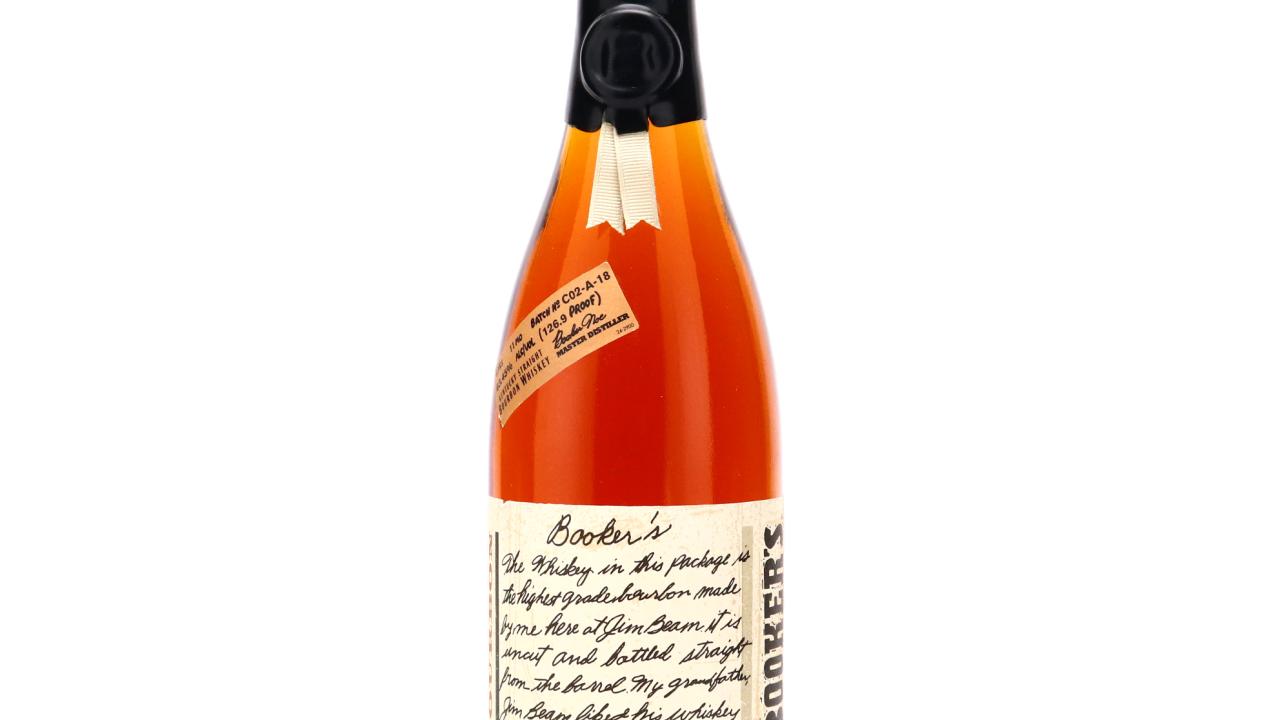 11 MO BATCH Nº C02-A-18
ALC/VOL (126.9 PROOF)
KENTUCKY STRAIGHT Booker Noe
BOURBON WHISKEY MASTER DISTILLER
Booker's
The Whiskey in this package is
the highest grade bourbon made
by me here at Jim Beam. it is
uncut and bottled straight
from the barrel. My grandfather,
Jim Beam liked his whiskey
BOOKER'S